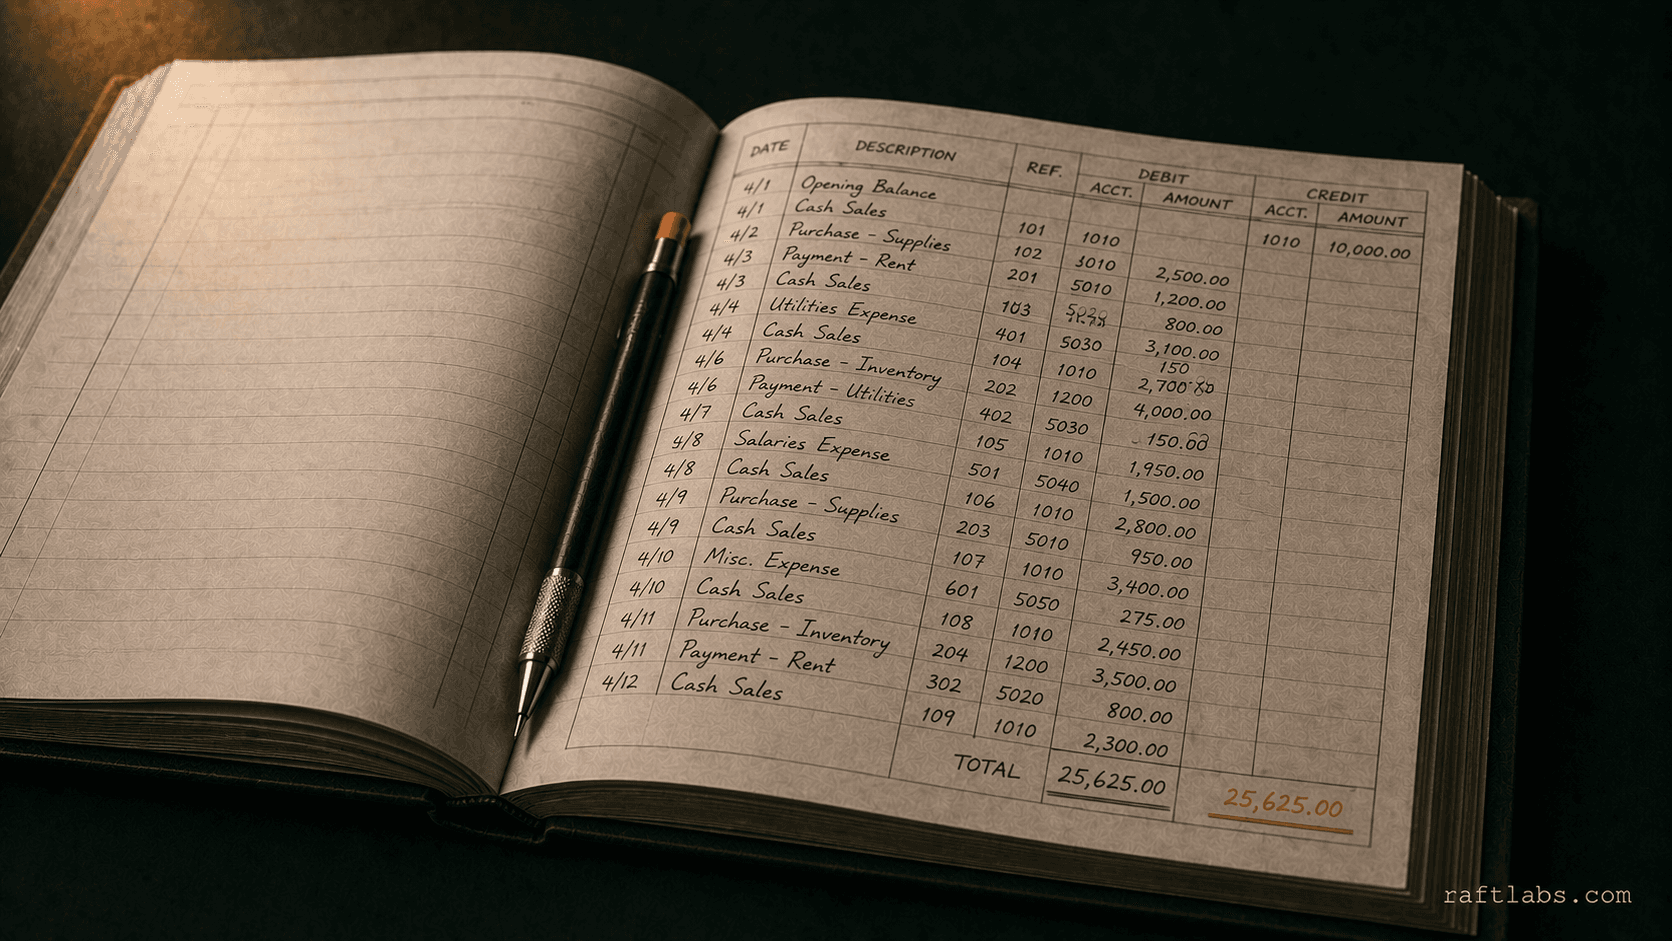 DATE DESCRIPTION REF. DEBIT CREDIT
ACCT. AMOUNT ACCT. AMOUNT
4/1 Opening Balance
4/1 Cash Sales 101 1010 1010 10,000.00
4/2 Purchase - Supplies 102 3010 2,500.00
4/3 Payment - Rent 201 5010 1,200.00
4/3 Cash Sales 103 800.00
4/4 Utilities Expense 401 5030 3,100.00
4/4 Cash Sales 104 1010 150
4/6 Purchase - Inventory 202 1200 4,000.00
4/6 Payment - Utilities 402 5030 150.00
4/7 Cash Sales 105 1010 1,950.00
4/8 Salaries Expense 501 5040 1,500.00
4/8 Cash Sales 106 1010 2,800.00
4/9 Purchase - Supplies 203 5010 950.00
4/9 Cash Sales 107 1010 3,400.00
4/10 Misc. Expense 601 5050 275.00
4/10 Cash Sales 108 1010 2,450.00
4/11 Purchase - Inventory 204 1200 3,500.00
4/11 Payment - Rent 302 5020 800.00
4/12 Cash Sales 109 1010 2,300.00
TOTAL 25,625.00 25,625.00
raftlabs.com